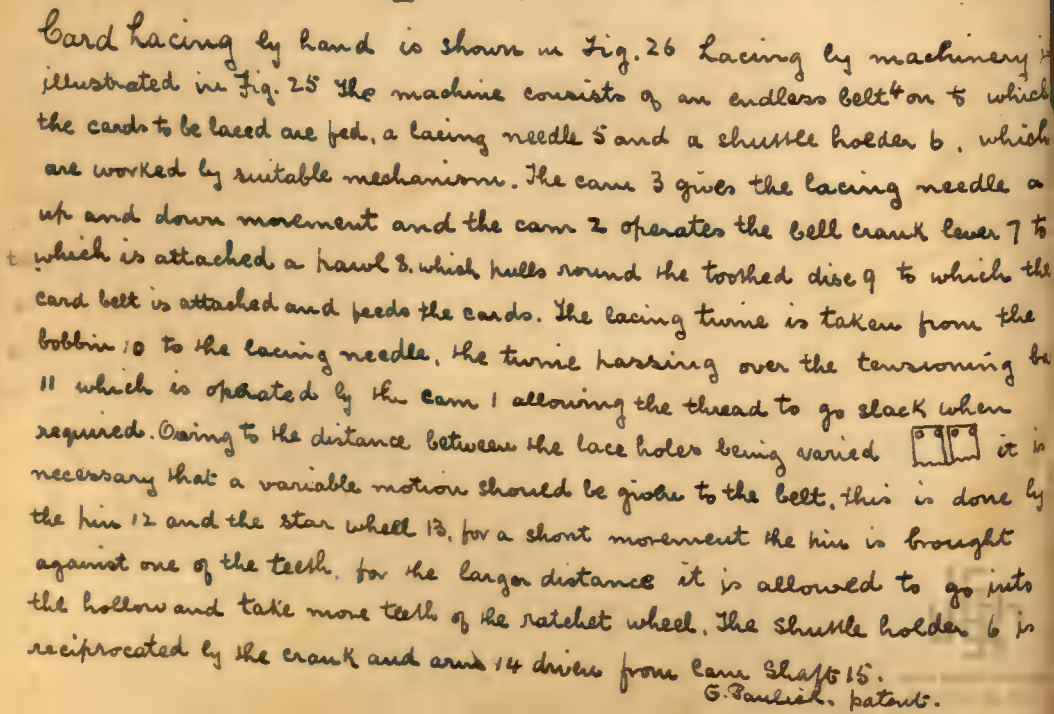 Card Lacing by hand is shown in Fig. 26 Lacing by machinery is
illustrated in Fig. 25 The machine consists of an endless belt 4 on to which
the cards to be laced are fed, a lacing needle 5 and a shuttle holder 6, which
are worked by suitable mechanism. The cam 3 gives the lacing needle a
up and down movement and the cam 2 operates the bell crank lever 7 to
which is attached a pawl 8. which pulls round the toothed disc 9 to which the
card belt is attached and feeds the cards. The lacing twine is taken from the
bobbin 10 to the lacing needle, the twine passing over the tensioning ba
11 which is operated by the cam 1 allowing the thread to go slack when
required. Owing to the distance between the lace holes being varied it is
necessary that a variable motion should be given to the belt, this is done by
the pin 12 and the star wheel 13, for a short movement the pin is brought
against one of the teeth, for the larger distance it is allowed to go into
the hollow and take more teeth of the ratchet wheel. The shuttle holder 6 is
reciprocated by the crank and arm 14 driven from Cam Shaft 15.
patent.